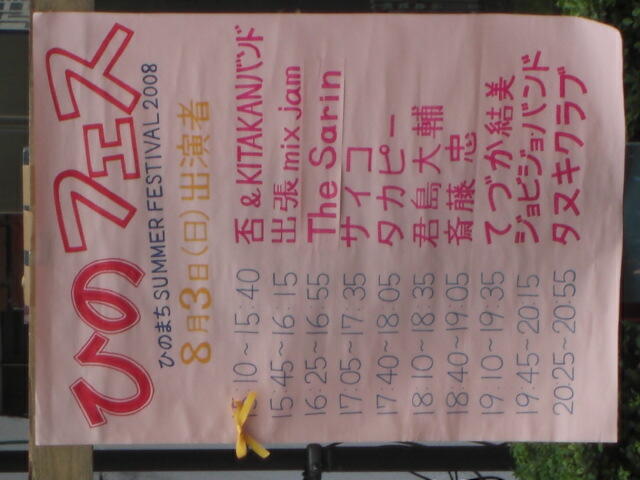 ひのフェス
ひのまち SUMMER FESTIVAL 2008
8月3日(日)出演者
:10~15:40 否&KITAKANバンド
15:45~16:15 出張 mix jam
16:25~16:55 The Sarin
17:05~17:35 サイコ
17:40~18:05 タカピー
18:10~18:35 君島大輔
18:40~19:05 斎藤 忠
19:10~19:35 てづか結美
19:45~20:15 ジョビジョバンド
20:25~20:55 タヌキクラブ